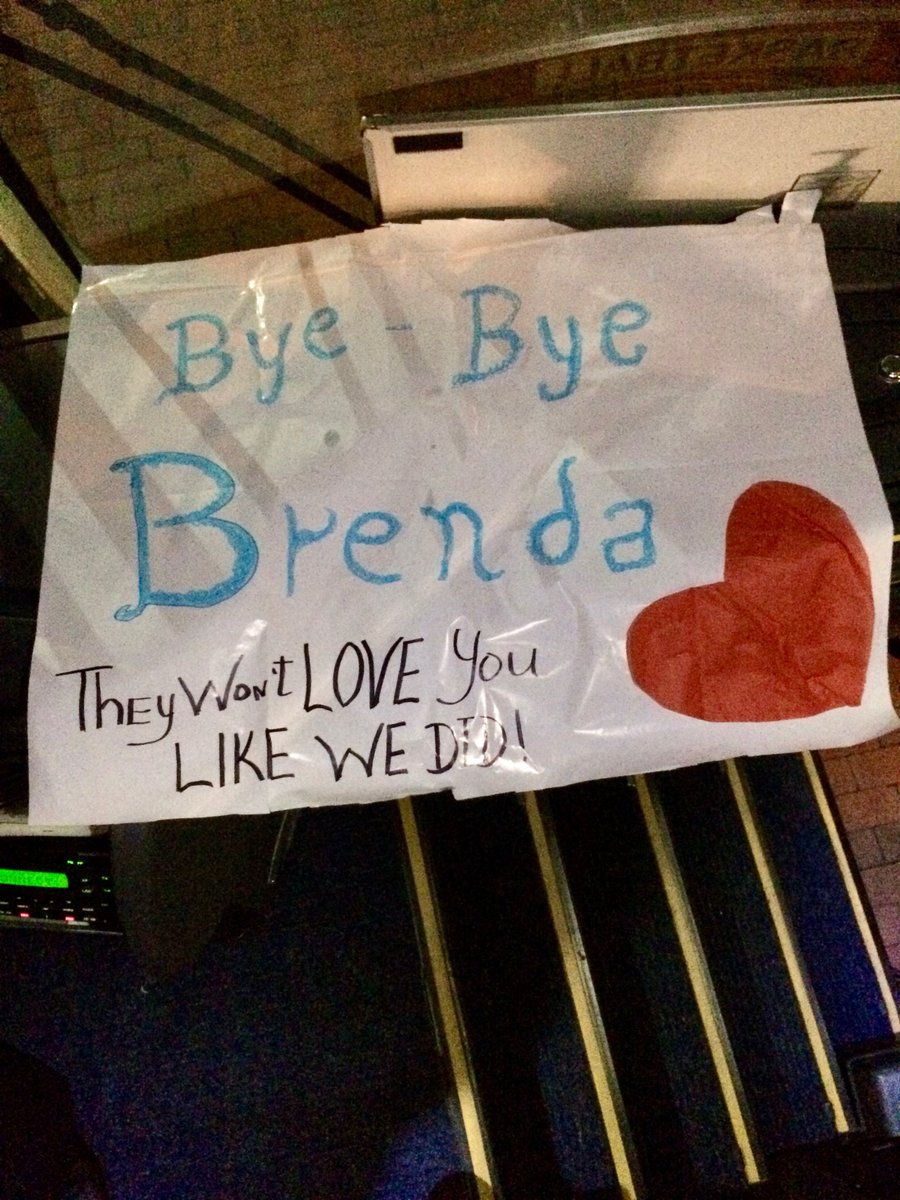 BASKETBALL
Bye-Bye
Brenda
They Won't LOVE You
LIKE WE DID!